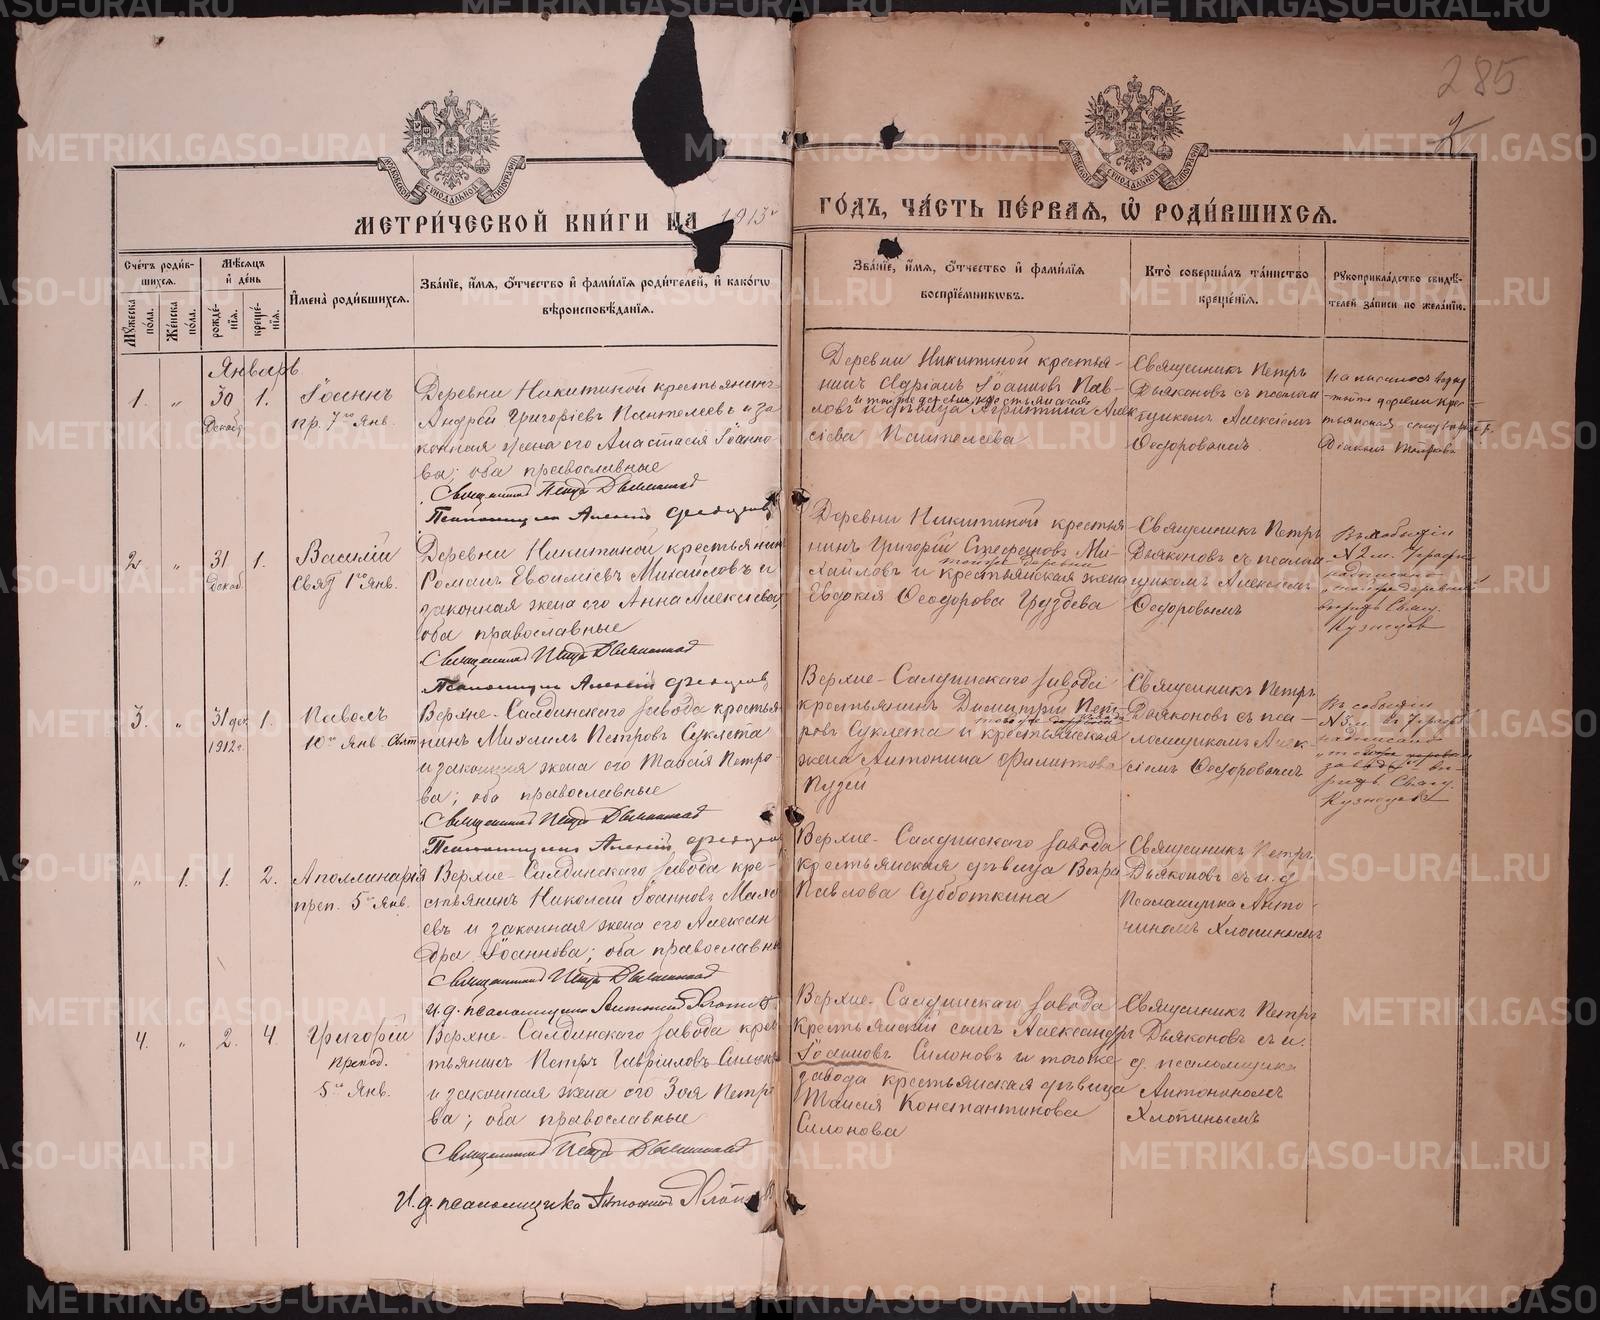 285
2
МЕТРИ́ЧЕСКОЙ КНИ́ГИ НА 1913 г
ГО́ДЪ, ЧА́СТЬ ПЕ́РВАЯ, Ѿ РОДИ́ВШИХСЯ.
Сче́тъ роди́в-
шихся.
Мꙋжеска пола.
Же́нска пола.
Мѣ́сяцъ
и҆ де́нь
рожде́-
нїя.
креще́-
нїя.
И҆мена̀ роди́вшихся.
Зва́нїе, и҆́мя, ѻ҆́тчество и҆ фами́лїя роди́телей, и҆ како́гѡ
вѣроисповѣ́данїя.
Зва́нїе, и҆́мя, ѻ҆́тчество и҆ фами́лїя
воспрїе́мниковъ.
Кто̀ соверша́лъ та́инство
креще́нїя.
Рꙋкоприкла́дство свидѣ́-
телей за́писи по жела́нїю.
Январь
1.
„
30
Декаб.
1.
Іоаннъ
пр. 7го Янв.
Деревни Никитиной крестьянинъ
Андрей Григоріевъ Пантелеевъ и за-
конная жена его Анастасія Іоанно-
ва; оба православные
Священникъ Петръ Дьяконовъ
Псаломщикъ Алексій Федоровъ
Деревни Никитиной крестья-
нинъ Адріанъ Іоанновъ Пав-
ловъ и дѣвица
сіева Пантелеева
Священникъ Петръ
Дьяконовъ съ псалом-
щикомъ Алексіемъ
Ѳеодоровымъ
2
„
31
Декаб.
1.
Василій
Свят 1го Янв.
Деревни Никитиной крестьянинъ
Романъ Евѳиміевъ Михайловъ и
законная жена его Анна Алексіева;
оба православные
Священникъ Петръ Дьяконовъ
Псаломщикъ Алексій Федоровъ
Деревни Никитиной крестья
нинъ Григорій Стефановъ Ми-
тойже деревни
хайловъ и крестьянская жена
Евдокія Ѳеодорова Груздева
Священникъ Петръ
Дьяконовъ съ псалом
щикомъ Алексіемъ
Ѳеодоровымъ
Кузнецов
3.
„
31 дек
1912 г.
1.
Павелъ
10го Янв. Свят
Верхне-Салдинскаго завода крестья
нинъ Михаилъ Петровъ Суклета
и законная жена его Таисія Петро-
ва; оба православные
Священникъ Петръ Дьяконовъ
Псаломщикъ Алексій Федоровъ
Верхне-Салдинскаго завода
крестьянинъ Димитрій Пет-
ровъ Суклета и крестьянская
жена Антонина Филиппова
Пузей
Священникъ Петръ
Дьяконовъ съ пса-
ломщикомъ Алек-
сіемъ Ѳеодоровымъ
Кузнецов
„
1.
1.
2.
Аполлинарія
преп. 5го Янв.
Верхне-Салдинскаго завода кре-
стьянинъ Николай Іоанновъ
евъ и законная жена его Алексан
дра Іоаннова; оба православные
Священникъ Петръ Дьяконовъ
И.д. псаломщика Антонинъ Хлопинъ
Верхне-Салдинскаго завода
крестьянская дѣвица Вѣра
Павлова Субботкина
Священникъ Петръ
Дьяконовъ съ и.д
Псаломщика Анто-
ниномъ Хлопинымъ
4.
„
2.
4.
Григорій
препод.
5го Янв.
Верхне-Салдинскаго завода крес
тьянинъ Петръ Гавріиловъ Силоновъ
и законная жена его Зоя Петро
ва; оба православные
Священникъ Петръ Дьяконовъ
И.д. псаломщика Антонинъ Хлопинъ
Верхне-Салдинскаго завода
Крестьянскій сынъ Александръ
Іоанновъ Силоновъ и тогоже
завода крестьянская дѣвица
Таисія Константинова
Силонова
Священникъ Петръ
Дьяконовъ съ и.
д. псаломщика
Антониномъ
Хлопинымъ
METRIKI.GASO-URAL.RU